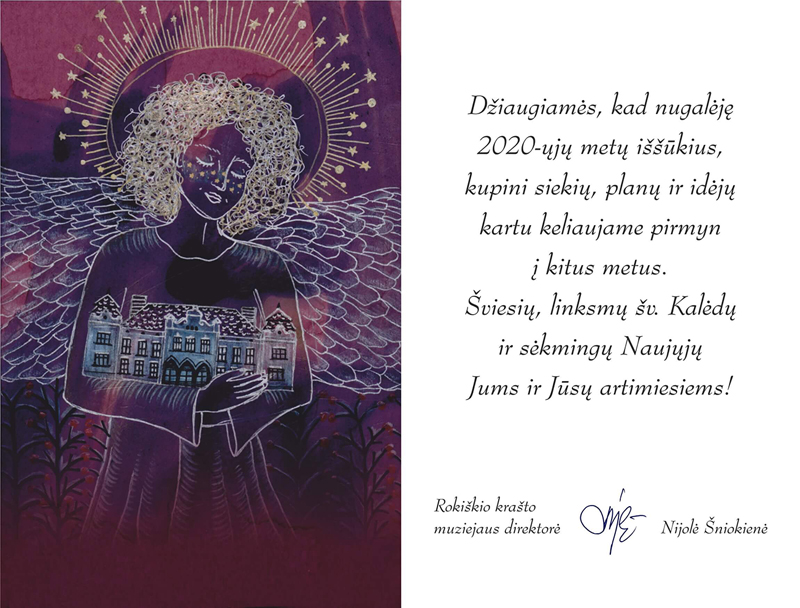 Džiaugiamės, kad nugalėję
2020-ųjų metų iššūkius,
kupini siekių, planų ir idėjų
kartu keliaujame pirmyn
į kitus metus.
Šviesių, linksmų šv. Kalėdų
ir sėkmingų Naujųjų
Jums ir Jūsų artimiesiems!
Rokiškio krašto
muziejaus direktorė
Nijolė Šniokienė